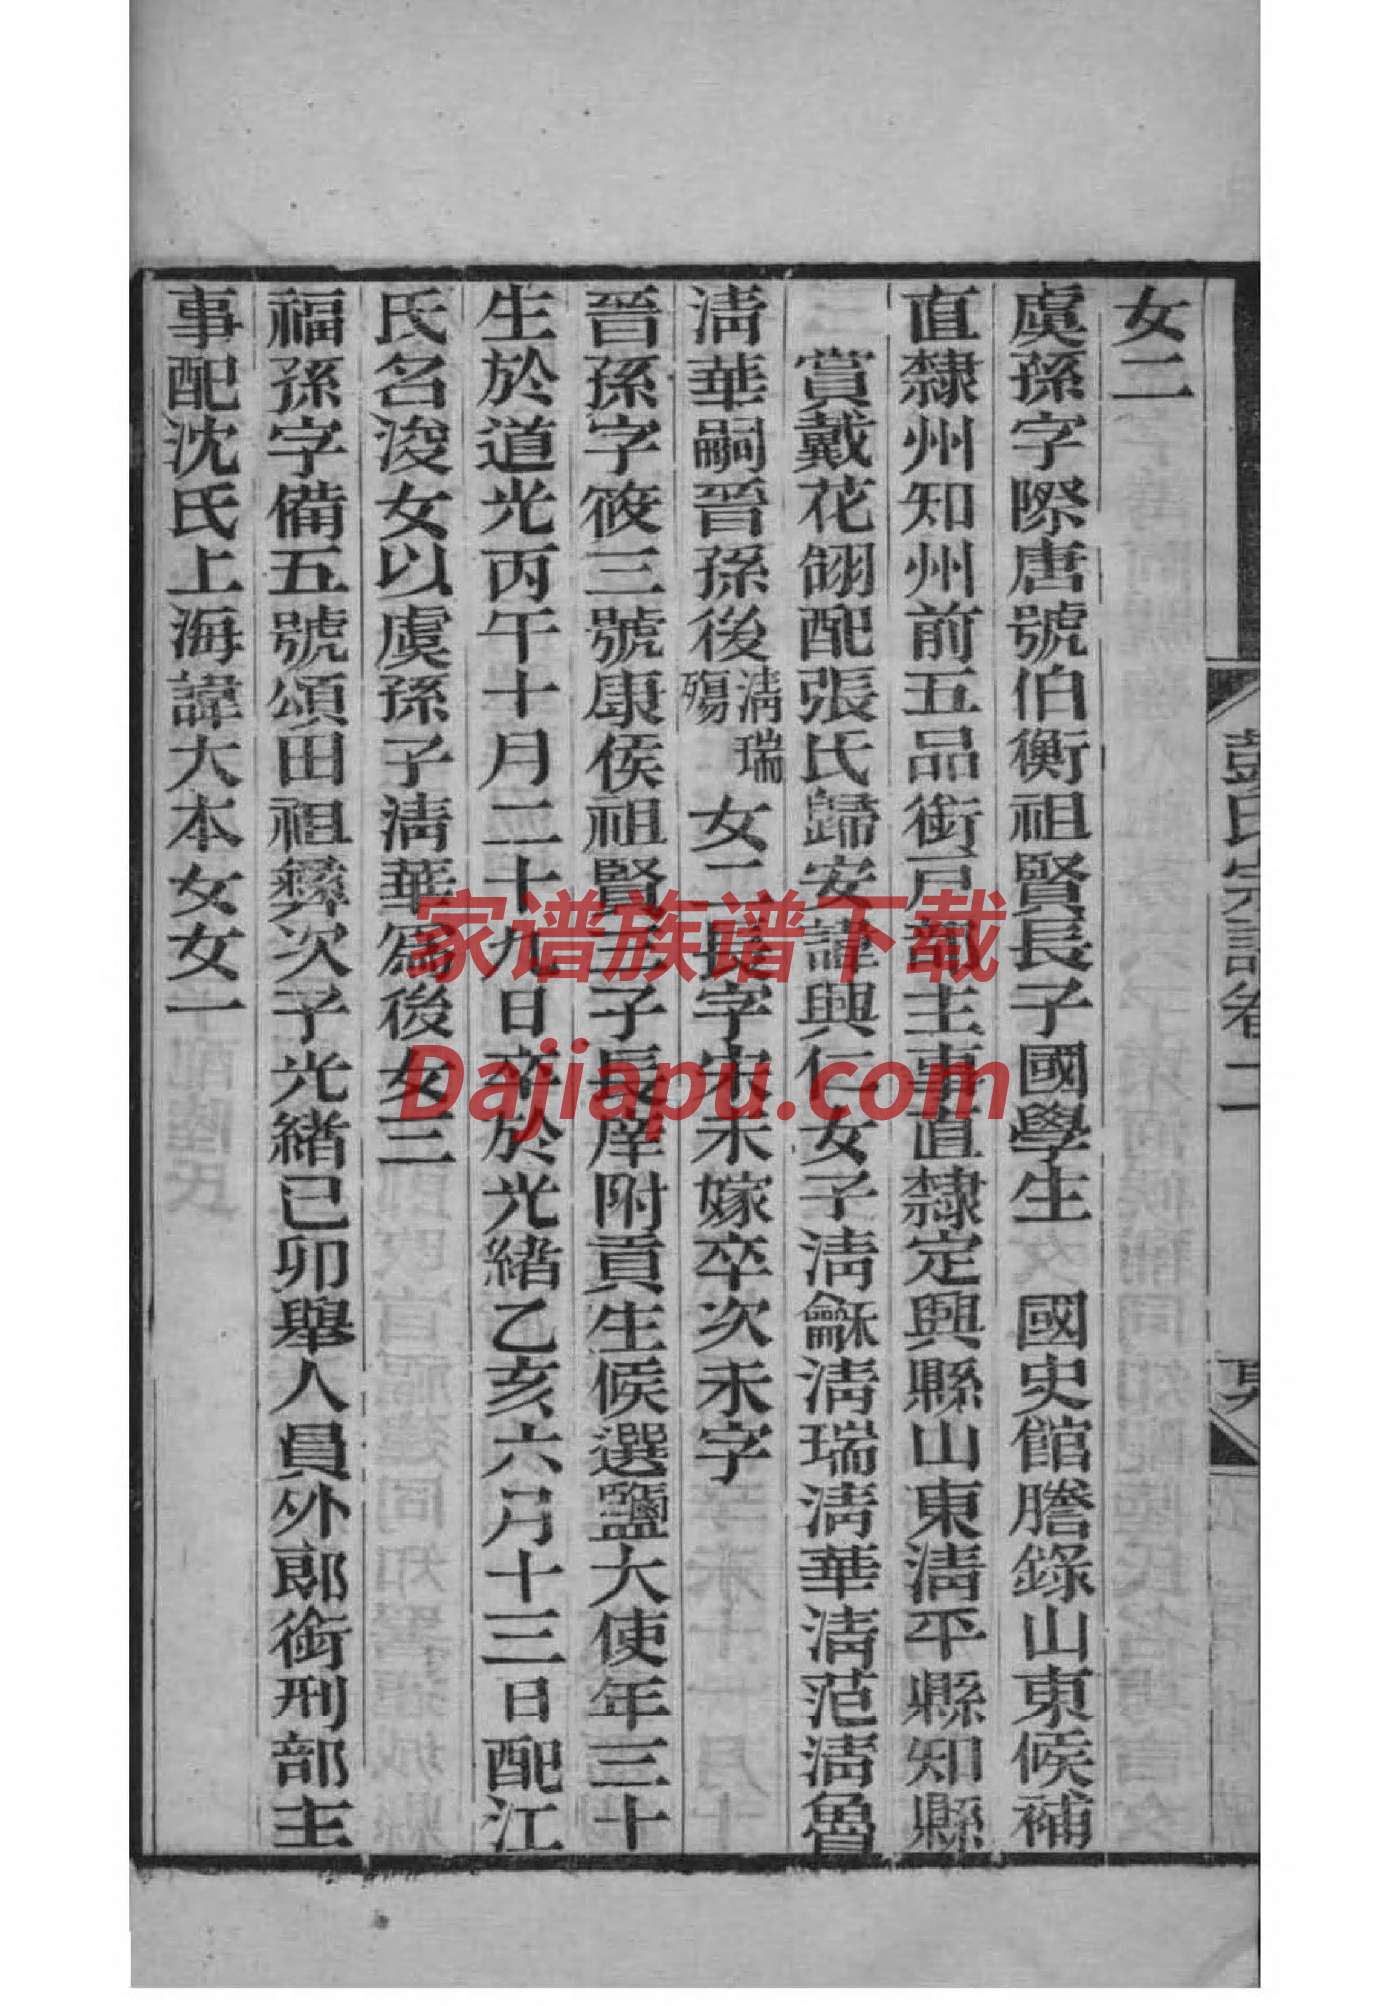 女二
虞孫字際唐號伯衡祖賢長子國學生　國史館謄錄山東候補
直隸州知州前五品銜戶部主事直隸定興縣山東淸平縣知縣
賞戴花翎配張氏歸安諱興仁女子淸龢淸瑞淸華淸范淸魯
淸華嗣晉孫後淸瑞殤女二長字宋未嫁卒次未字
晉孫字筱三號康侯祖賢三子長庠附貢生候選鹽大使年三十
生於道光丙午十月二十九日卒於光緖乙亥六月十三日配江
氏名浚女以虞孫子淸華爲後女三
福孫字備五號頌田祖彝次子光緖己卯舉人員外郎銜刑部主
事配沈氏上海諱大本女女一
彭氏宗譜卷二
家谱族谱下载
Dajiapu.com